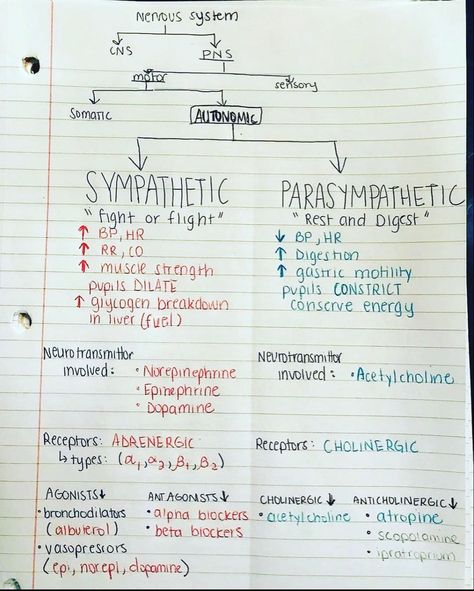 Nervous system
CNS
PNS
motor
sensory
Somatic
AUTONOMIC
SYMPATHETIC
"Fight or flight"
↑ BP, HR
↑ RR, CO
↑ muscle strength
pupils DILATE
↑ glycogen breakdown
in liver (fuel)
PARASYMPATHETIC
"Rest and Digest"
↓ BP, HR
↑ Digestion
↑ gastric motility
pupils CONSTRICT
conserve energy
Neurotransmittor
involved: • Norepinephrine
• Epinephrine
• Dopamine
Neurotransmittor
involved: • Acetylcholine
Receptors: ADRENERGIC
↳ types: (α1, α2, β1, β2)
Receptors: CHOLINERGIC
AGONISTS↓
•bronchodilators
(albuterol)
•vasopressors
(epi, norepi, dopamine)
ANTAGONISTS↓
•alpha blockers
•beta blockers
CHOLINERGIC↓
•acetylcholine
ANTICHOLINERGIC↓
•atropine
•scopolamine
•ipratroprium